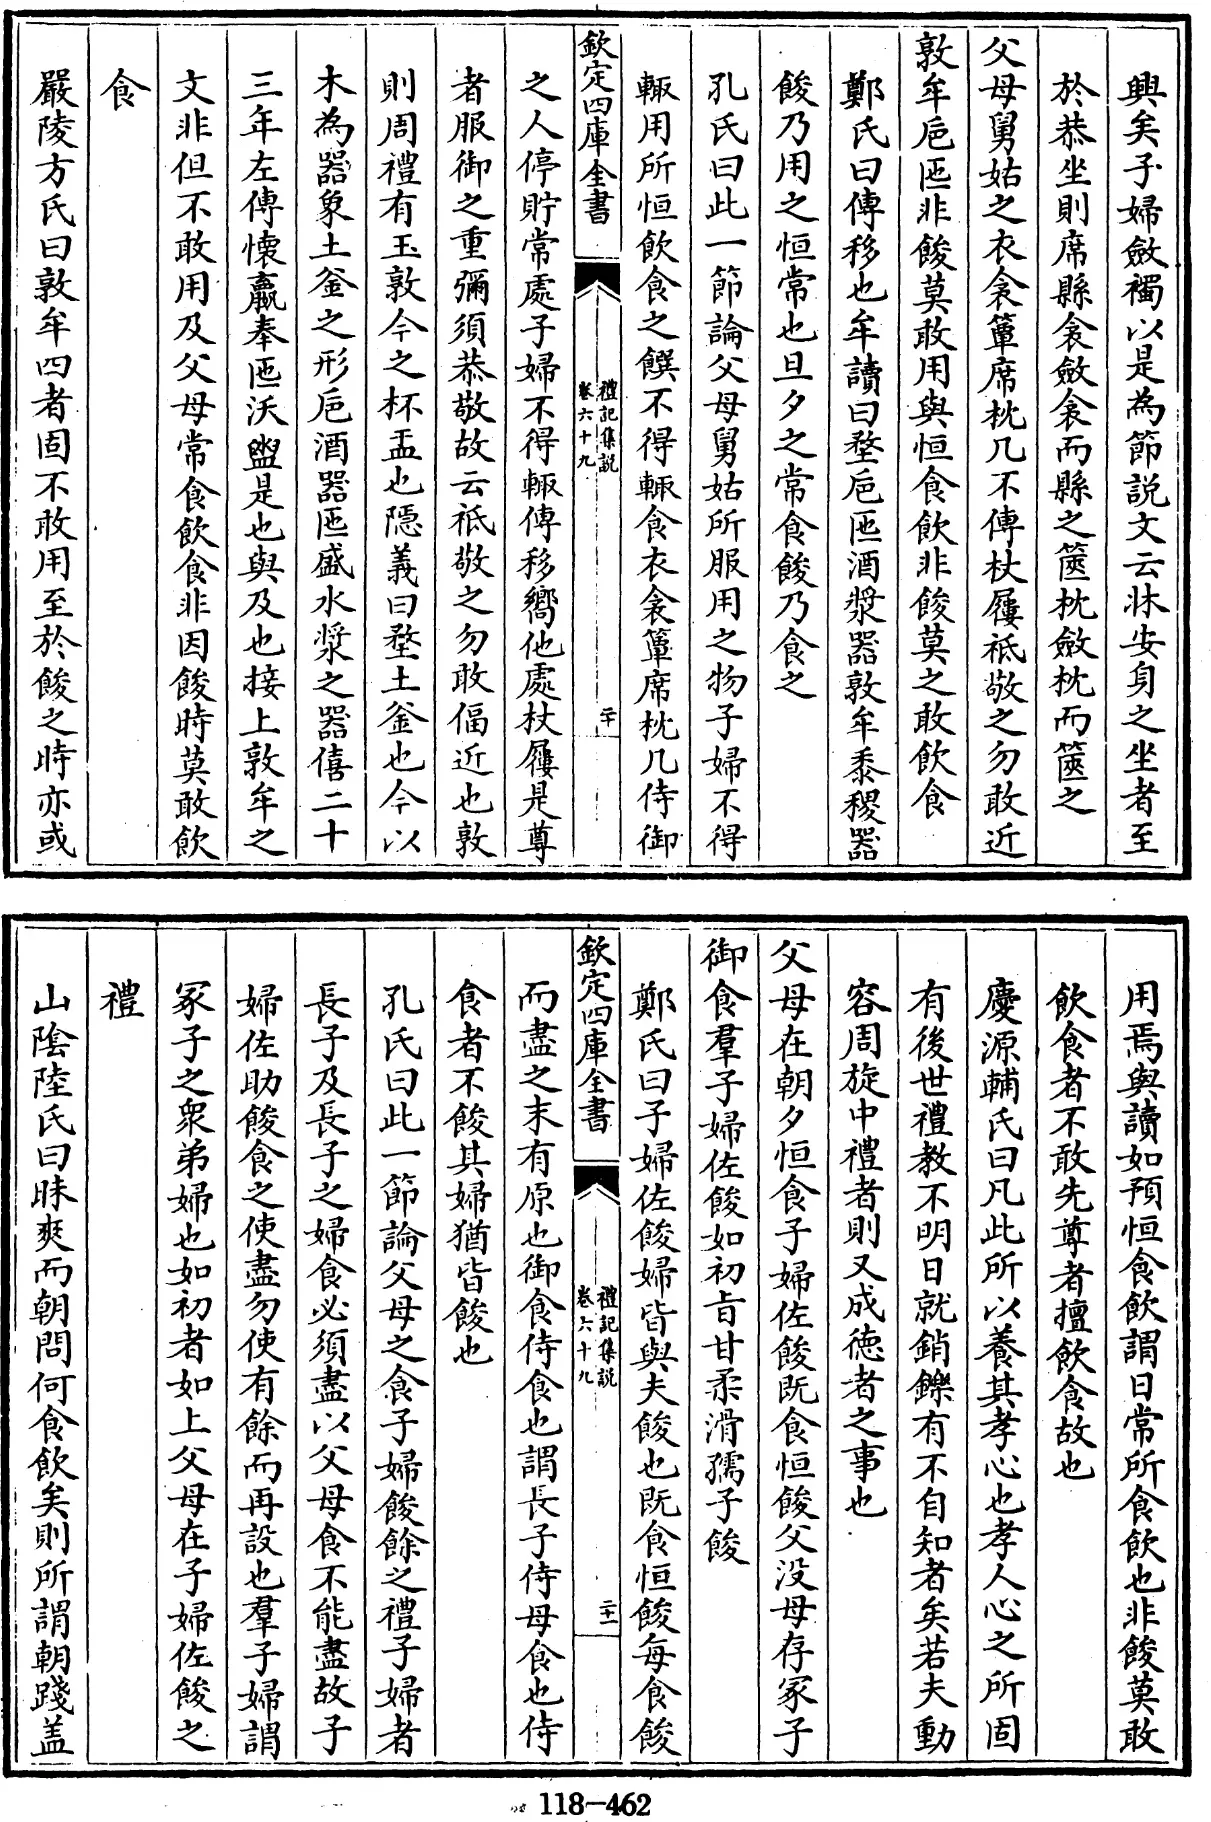 興矣子婦斂襡以是為節説文云牀安身之坐者至
於恭坐則席縣衾斂衾而縣之篋枕斂枕而篋之
父母舅姑之衣衾簟席枕几不傳杖屨祗敬之勿敢近
敦牟巵匜非餕莫敢用與恒食飲非餕莫之敢飲食
鄭氏曰傳移也牟讀曰堥巵匜酒漿器敦牟黍稷器
餕乃用之恒常也旦夕之常食餕乃食之
孔氏曰此一節論父母舅姑所服用之物子婦不得
輒用所恒飲食之饌不得輒食衣衾簟席枕几侍御
欽定四庫全書
禮記集説
卷六十九
二十
之人停貯常處子婦不得輒傳移嚮他處杖屨是尊
者服御之重彌須恭敬故云祗敬之勿敢偪近也敦
則周禮有玉敦今之杯盂也隱義曰堥土釜也今以
木為器象土釜之形巵酒器匜盛水漿之器僖二十
三年左傳懷嬴奉匜沃盥是也與及也接上敦牟之
文非但不敢用及父母常食飲食非因餕時莫敢飲
食
嚴陵方氏曰敦牟四者固不敢用至於餕之時亦或
用焉與讀如預恒食飲謂日常所食飲也非餕莫敢
飲食者不敢先尊者擅飲食故也
慶源輔氏曰凡此所以養其孝心也孝人心之所固
有後世禮教不明日就銷鑠有不自知者矣若夫動
容周旋中禮者則又成德者之事也
父母在朝夕恒食子婦佐餕既食恒餕父没母存冢子
御食羣子婦佐餕如初旨甘柔滑孺子餕
鄭氏曰子婦佐餕婦皆與夫餕也既食恒餕每食餕
欽定四庫全書
禮記集説
卷六十九
二十一
而盡之末有原也御食侍食也謂長子侍母食也侍
食者不餕其婦猶皆餕也
孔氏曰此一節論父母之食子婦餕餘之禮子婦者
長子及長子之婦食必須盡以父母食不能盡故子
婦佐助餕食之使盡勿使有餘而再設也羣子婦謂
冢子之衆弟婦也如初者如上父母在子婦佐餕之
禮
山陰陸氏曰昧爽而朝問何食飲矣則所謂朝踐盖
118-462